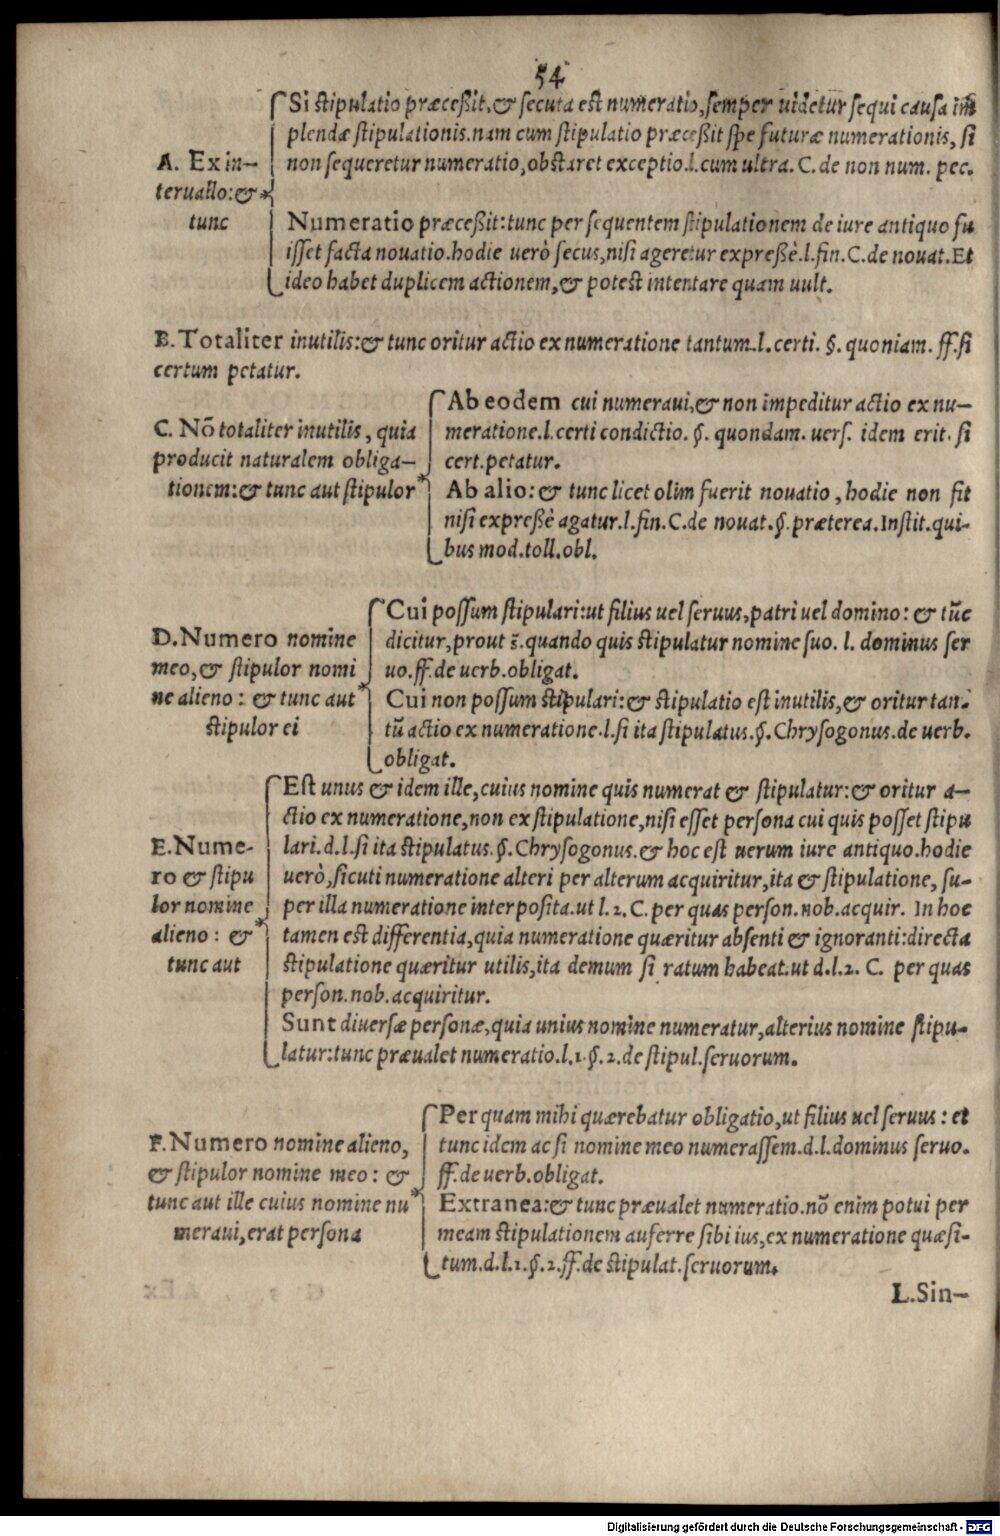 54
A. Ex in-
teruallo: &
tunc
Si stipulatio præceßit, & secuta est numeratio, semper uidetur sequi causa im
plendæ stipulationis. nam cum stipulatio præceßit spe futuræ numerationis, si
non sequeretur numeratio, obstaret exceptio. l. cum ultra. C. de non num. pec.
Numeratio præceßit: tunc per sequentem stipulationem de iure antiquo fu
isset facta nouatio. hodie uerò secus, nisi ageretur expreßè. l. fin. C. de nouat. Et
ideo habet duplicem actionem, & potest intentare quam uult.
B. Totaliter inutilis: & tunc oritur actio ex numeratione tantum. l. certi. §. quoniam. ff. si
certum petatur.
C. Nō totaliter inutilis, quia
producit naturalem obliga-
tionem: & tunc aut stipulor
Ab eodem cui numeraui, & non impeditur actio ex nu-
meratione. l. certi condictio. §. quondam. uers. idem erit. si
cert. petatur.
Ab alio: & tunc licet olim fuerit nouatio, hodie non fit
nisi expreßè agatur. l. fin. C. de nouat. §. præterea. Instit. qui-
bus mod. toll. obl.
D. Numero nomine
meo, & stipulor nomi
ne alieno: & tunc aut
stipulor ei
Cui possum stipulari: ut filius uel seruus, patri uel domino: & tūc
dicitur, prout s̄. quando quis stipulatur nomine suo. l. dominus ser
uo. ff. de uerb. obligat.
Cui non possum stipulari: & stipulatio est inutilis, & oritur tan-
tū actio ex numeratione. l. si ita stipulatus. §. Chrysogonus. de uerb.
obligat.
E. Nume-
ro & stipu
lor nomine
alieno: &
tunc aut
Est unus & idem ille, cuius nomine quis numerat & stipulatur: & oritur a-
ctio ex numeratione, non ex stipulatione, nisi esset persona cui quis posset stipu
lari. d. l. si ita stipulatus. §. Chrysogonus. & hoc est uerum iure antiquo. hodie
uerò, sicuti numeratione alteri per alterum acquiritur, ita & stipulatione, su-
per illa numeratione interposita. ut l. 2. C. per quas person. nob. acquir. In hoc
tamen est differentia, quia numeratione quæritur absenti & ignoranti: directa
stipulatione quæritur utilis, ita demum si ratum habeat. ut d. l. 2. C. per quas
person. nob. acquiritur.
Sunt diuersæ personæ, quia unius nomine numeratur, alterius nomine stipu-
latur: tunc præualet numeratio. l. 1. §. 2. de stipul. seruorum.
F. Numero nomine alieno,
& stipulor nomine meo: &
tunc aut ille cuius nomine nu
meraui, erat persona
Per quam mihi quærebatur obligatio, ut filius uel seruus: et
tunc idem ac si nomine meo numerassem. d. l. dominus seruo.
ff. de uerb. obligat.
Extranea: & tunc præualet numeratio. nō enim potui per
meam stipulationem auferre sibi ius, ex numeratione quæsi-
tum. d. l. 1. §. 2. ff. de stipulat. seruorum.
L. Sin-
Digitalisierung gefördert durch die Deutsche Forschungsgemeinschaft - DFG